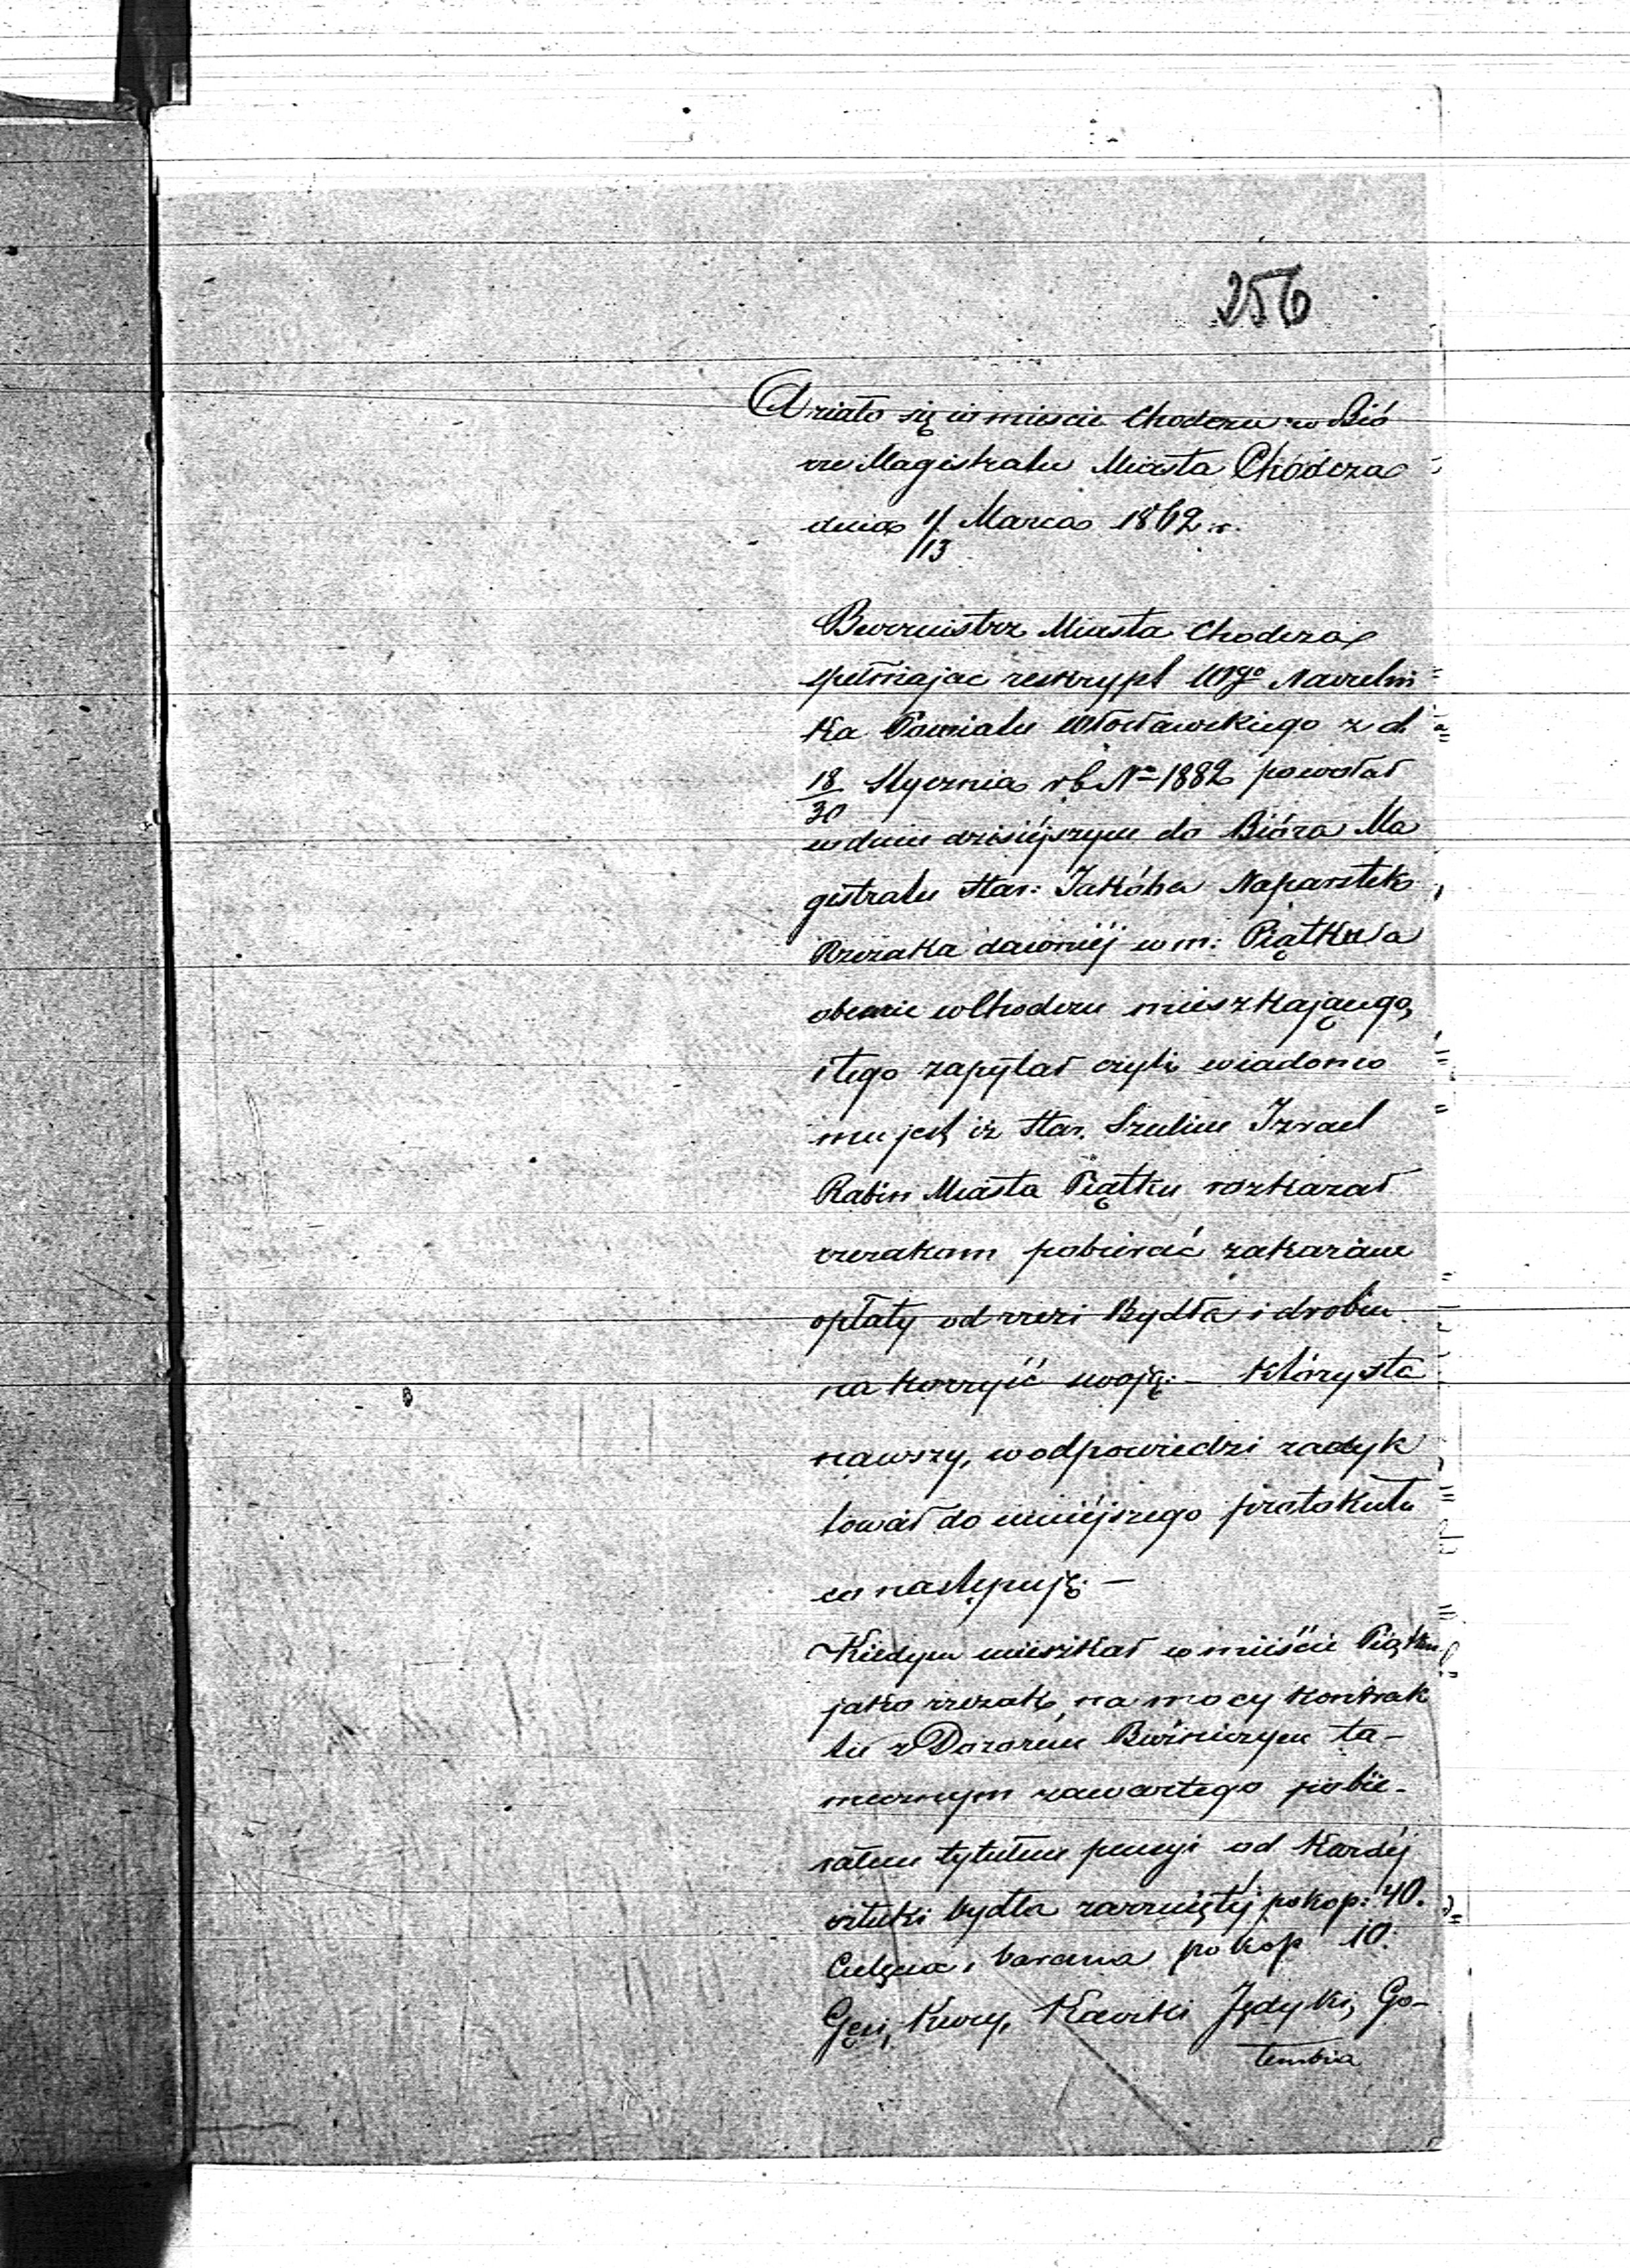 256
Działo się w mieście Chodczu w Bió
rze Magistratu Miasta Chodcza
dnia 1/13 Marca 1862 r.
Burmistrz Miasta Chodcza
spełniając reskrypt Wgo Naczelni
ka Powiatu Włocławskiego z d
18/30 Stycznia r b No 1882 powołał
w dniu dzisiéjszym do Bióra Ma
gistratu Star: Jakóba Naparstek
Rzezaka dawniéj w m: Piątku a
obecnie w Chodczu mieszkającego,
i tego zapytał czyli wiadomo
mu jest iż Star. Szulim Izrael
Rabin Miasta Piątku rozkazał
rzezakom pobierać zakazane
opłaty od rzezi Bydła i drobiu
na korzyść swoją: – Który sta
nąwszy, w odpowiedzi zadyk
tował do niniéjszego protokułu
co następuję: –
Kiedym mieszkał w mieście Piątku
jako rzezak, na mocy kontrak
tu z Dozorem Bóżniczym ta-
mecznym zawartego pobie-
rałem tytułem pensyi od każdéj
sztuki bydła zarzniętéj po kop: 40.
Cielęcia, barana po kop 10.
Gęsi, Kury, Kaczki Jędyki, Go-
łembia